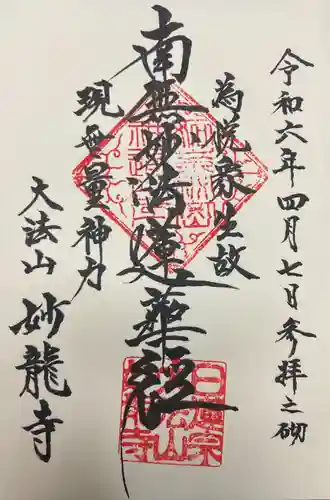 令和六年四月七日参拝之砌
為悦衆生故
南無妙法蓮華経
現無量神力
大法山妙龍寺